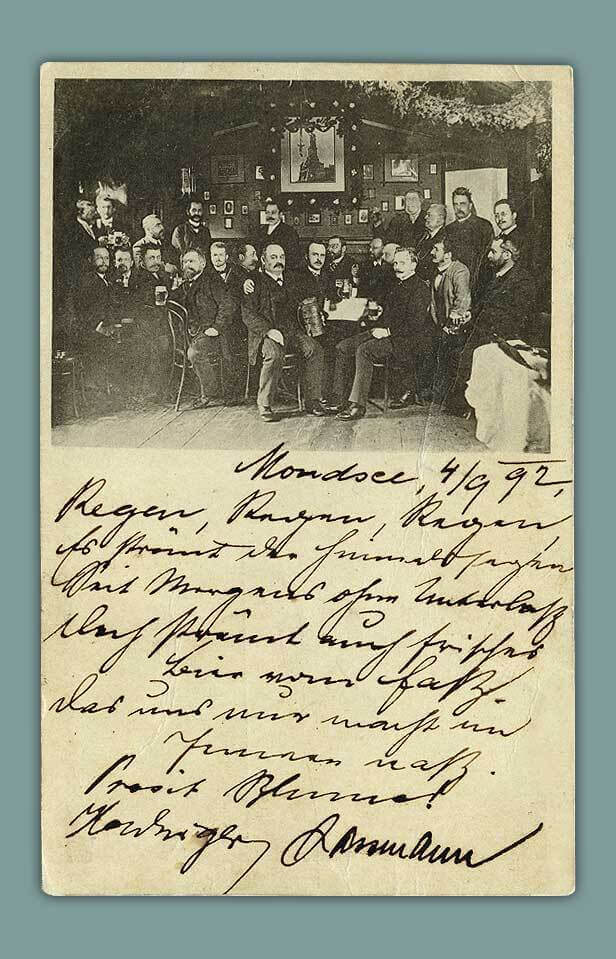 Mondsee, 4/9 92,
Regen, Regen, Regen,
Es strömt der Himmelssegen
Seit Morgens ohne Unterlaß
Doch strömt auch frisches
Bier vom Faß.
Das uns nur macht im
Innern naß.
Prosit Blume!